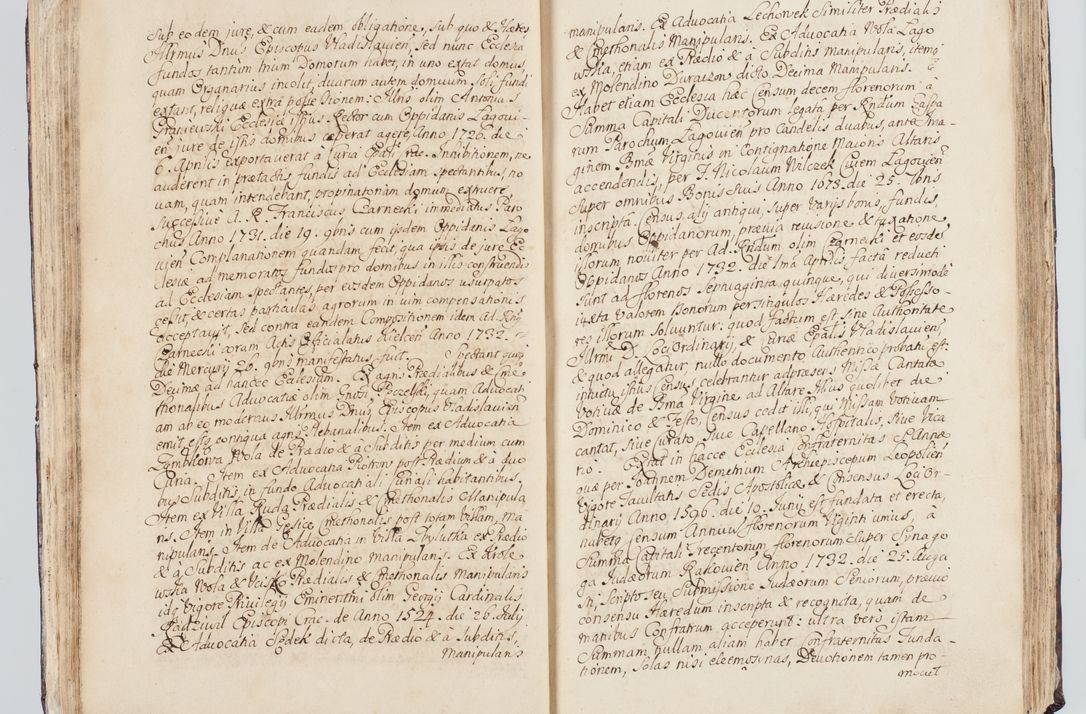 sub eodem jure, & cum eadem obligatione, sub quo & Hæres
Illrmus Dnus Episcopus Vladislavien, sed nunc Ecclesia
fundos tantum trium Domorum habet, in uno extat domus,
quam Organarius incolit, duarum autem domuum soli fundi
extant, reliquæ extra possessionem: Illris olim Antonius
Graniewski Ecclesiæ istius Rector cum Oppidanis Lagovi-
en jure de istis domibus cæperat agere Anno 1726. die
6. Aprilis exportaverat à Curia Inhibitionem, ne
auderent in prætactis fundis ad Ecclesiam spectantibus, no
vam, quam intendebant, propinatoriam domum extruere
successivè A. R. Franciscus Czarnecki immediatus Paro
chus Anno 1731. die 19. 9bris cum ijsdem Oppidanis Lago
vien Complanationem quandam fecit, qua ipsis de jure Ec
clesiæ ad memoratos fundos pro domibus in illis construendis
ad Ecclesiam spectantes, per eosdem Oppidanos usurpatos
cessit, & certas particulas agrorum in vim compensationis
acceptavit, sed contra eandem Compositionem idem Ad. Rndus
Czarnecki coram Actis Officialatus Kielcen Anno 1732.
die Mercurij 26. 9bris manifestatus fuit. Spectant quoq
Decimæ ad hancce Ecclesiam. Ex agris Prædialibus & Cme
thonalibus Advocatiæ olim Gnosi quam Advocati
am ab eo modernus Illrmus Dnus Episcopus Vladislavien
emit, esto contigua agris Plebanalibus. Item ex Advocatia
Zembkowa Wola de Prædio & a Subditis per medium cum
Curia. Item ex Advocatia Piotrów post Prædium & à duo
bus Subditis, in fundo Advocatiali habitantibus,
Item ex Villa Ruda Prædialis & Cmethonalis Manipula
ris. Item in Villa Cmethonalis post totam Villam, ma
nipularis. Item de Advocatia in Villa Zbylutka ex Prædio
& à Subditis ac ex Molendino manipularis. Ex
Wola & Prædialis & Cmethonalis Manipularis
idq Vigore Privilegij Eminentmi olim Georgij Cardinalis
Radzivil Episcopi Crac. de Anno 1524. die 26. Julij
Ex Advocatia Sedek dicta, de Prædio & à Subditis,
Manipularis
manipularis. Ex Advocatia Lechówek Similiter Prædialis
& Cmethonalis Manipularis. Ex Advocatia Wola Lago
wska, etiam ex Prædio & à Subditis manipularis, itemq
ex Molendino dicto Decima Manipularis.
Habet etiam Ecclesia hæc Censum decem florenorum à
Summa Capitali Ducentorum legatâ per Rndum
rum Parochum Lagovien pro Candelis duabus, ante Ima-
ginem Bmæ Virginis in Contignatione Maioris Altaris
accendendis, per F. Nicolaum Wilczek Civem Lagovien
super omnibus Bonis suis Anno 1673. die 25. 7bris
inscripta Census alij antiqui, super varijs bonis, fundis,
domibus Oppidanorum, prævia revisione & taxatione
illorum noviter per Ad. Rndum olim Czarnecki et eosdem
Oppidanos Anno 1732. die 1ma Aprilis factâ reducti
sunt ad florenos septuaginta quinque, qui diversimodè
iuxta valorem Bonorum per singulos Hæredes & Possesso-
res illorum solvuntur: quod factum est sine Authoritate
Illrmi D. Loci Ordinarij & Bnæ Epalis Vladislavien,
& quod allegatur, nullo documento Authentico probati est:
intuitu istius census celebrantur adpræsens Missæ Cantatæ
Votivæ de Bma Virgine ad Altare Illius quolibet die
Dominico & Festo, Census cedit illi, qui Missam Votivam
cantat, sive Curato, sive Capellano Hospitalis, sive Vica
rio. Extat in hacce Ecclesia Confraternitas S. Annæ
quæ per Joannem Demetrium Archiepiscopum Leopolien
vigore Facultatis Sedis Apostolicæ & Consensus Loci Or-
dinarij Anno 1596. die 10. Junij est fundata et erecta,
habetq Censum Annuum florenorum Viginti unius, à
Summa Capitali Trecentorum florenorum super Synago
ga Judæorum Rakovien Anno 1732. die 25. Augu
sti, Scripto seu Submissione Judæorum Seniorum, prævio
consensu Hæredum inscripta & recognita, quam de
manibus Confratrum acceperunt: ultra vero istam
Summam, nullam aliam habet Confraternitas Funda-
tionem, solas nisi eleemosinas, Devotionem tamen pro-
movet